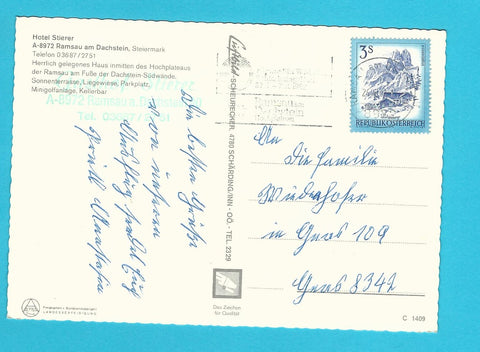 Hotel Stierer
A-8972 Ramsau am Dachstein, Steiermark
Telefon 03687/2751
Herrlich gelegenes Haus inmitten des Hochplateaus
der Ramsau am Fuße der Dachstein-Südwände.
Sonnenterrasse, Liegewiese, Parkplatz,
Minigolfanlage, Kellerbar
A-8972 Ramsau a. Dachstein
Tel. 03687/2751
Die besten Grüße
von unserem
Ausflug sendet Euch
SCHEURECKER, 4780 SCHÄRDING/INN - OÖ. - TEL. 2329
3 S
REPUBLIK ÖSTERREICH
An
Die Familie
Wiedenhofer
in Gnas 109
Gnas 8342
Das Zeichen
für Qualität
C 1409